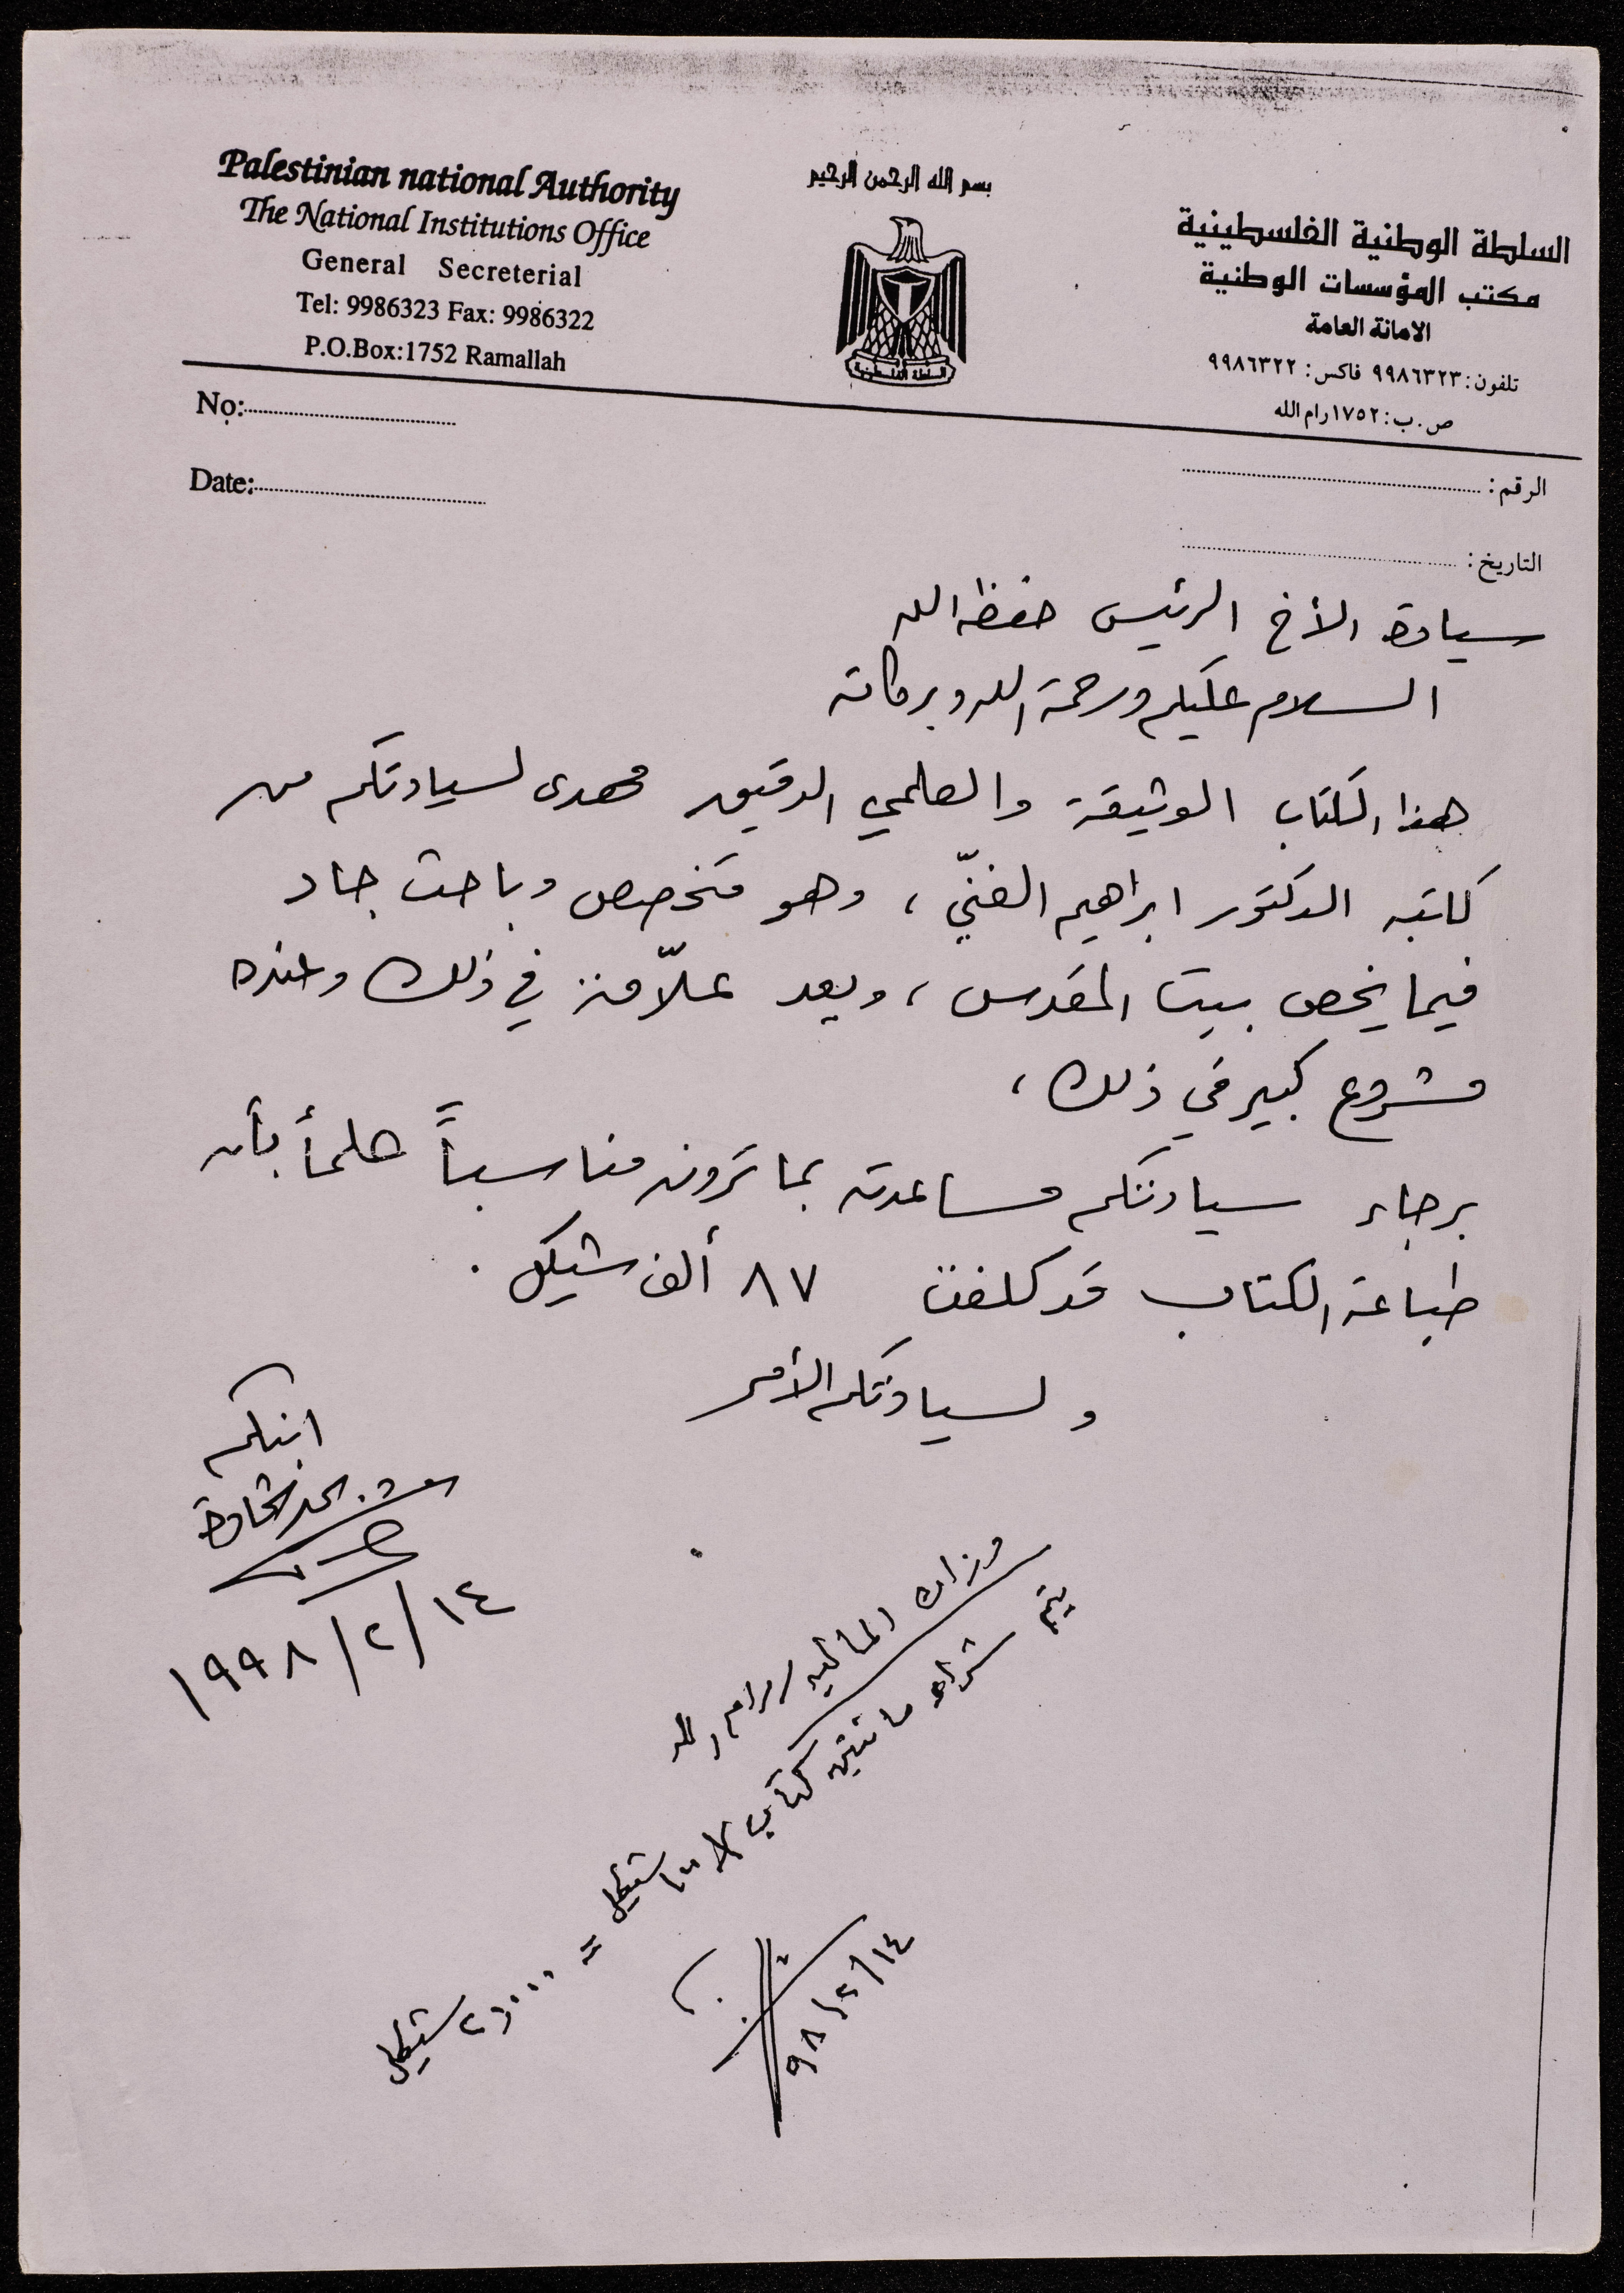 Palestinian national Authority
The National Institutions Office
General Secreterial
Tel: 9986323 Fax: 9986322
P.O.Box:1752 Ramallah
بسم الله الرحمن الرحيم
السلطة الفلسطينية
السلطة الوطنية الفلسطينية
مكتب المؤسسات الوطنية
الامانة العامة
تلفون: ٩٩٨٦٣٢٣ فاكس: ٩٩٨٦٣٢٢
ص.ب: ١٧٥٢ رام الله
No:
Date:
الرقم:
التاريخ:
سيادة الأخ الرئيس حفظه الله
السلام عليكم ورحمة الله وبركاته
هذا الكتاب الوثيقة والعلمي الدقيق مهدى لسيادتكم من
كاتبه الدكتور ابراهيم الفنّي، وهو متخصص وباحث جاد
فيما يخص بيت المقدس، ويعد علاّمة في ذلك وعنده
مشروع كبير في ذلك،
برجاء سيادتكم مساعدته بما ترونه مناسباً علماً بأن
طباعة الكتاب قد كلفت ٨٧ ألف شيكل.
ولسيادتكم الأمر
ابنكم
١٤/٢/١٩٩٨
وزارة المالية رام الله
يتم شراء مائتين كتاب شيكل = شيكل
١٤/٢/٩٨